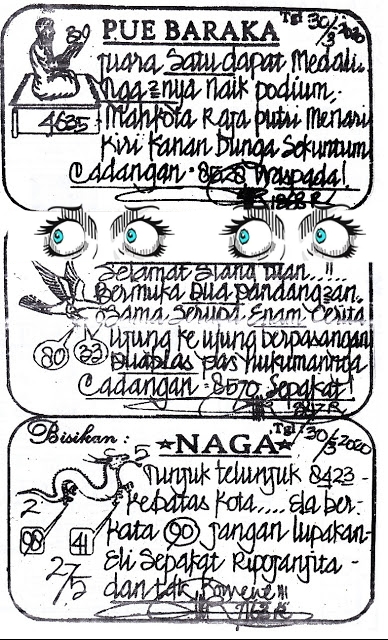 PUE BARAKA
Tgl 30/3 2020
Juara Satu dapat Medali..
naik podium,.
4635
Mahkota Raja putri Menari
Kiri Kanan Bunga Sekuntum
Cadangan : 8528 Waspada!
Selamat Siang tuan..!!
Bermuka Dua pandangan.
Sama Serupa Enam Cerita
Ujung ke ujung berpasangan
80 32
Duaplas pas hukumannya
Cadangan : 8570 Sepakat!
Bisikan :
NAGA
Tgl 30/3 2020
5
Tunjuk telunjuk 8423-
2
kebatas kota.... Ela ber-
98 41
kata 90 jangan lupakan-
27/5
Eli Sepakat
dan tak